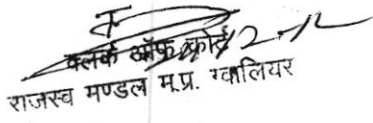 क्लर्क ऑफ कोर्ट
राजस्व मण्डल म.प्र. ग्वालियर